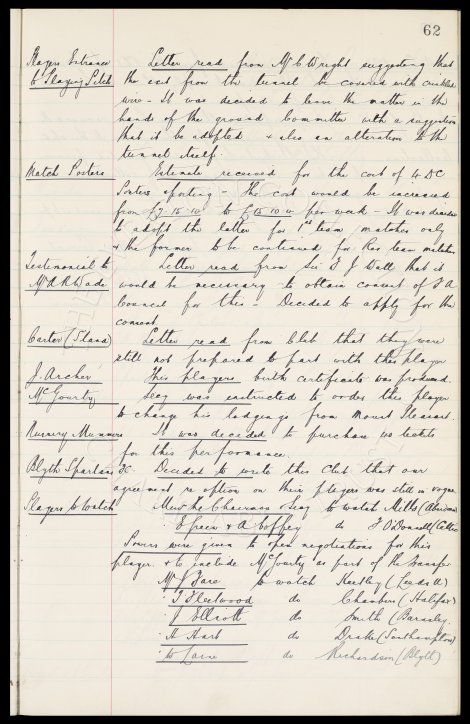 62
Players Entrance Letter read from Mr C Wright suggesting that
to Playing Pitch the exit from the tunnel be covered with
wire - It was decided to leave the matter in the
hands of the ground Committee with a suggestion
that it be adopted & also an alteration to the
tunnel itself.
Match Posters Estimate received for the cost of 4 DC
Posters sporting - The cost would be increased
from £7 15 10 to £15 10 0 per week - It was decided
to adopt the latter for 1st team matches only
& the former to be continued for Res team matches
Testimonial to Letter read from Sir F J Wall that it
Mr A R Wade would be necessary to obtain consent of F A
Council for this - Decided to apply for the
consent
Carter (Stand) Letter read from Club that they were
still not prepared to part with this player
J. Archer This players birth certificate was produced.
McGourty Secy was instructed to order this player
to change his lodgings from Mount Pleasant.
Nursery Mummers It was decided to purchase no tickets
for this performance.
Blyth Spartans FC Decided to write this Club that our
agreement re option on their players was still in vogue.
Players to Watch Mess The Chairman & Secy to watch Mills (Aberdeen)
E Green & A Coffey do F O'Donnell (Celtic)
Powers were given to open negotiations for this
player & to include McGourty as part of the transfer
Mr J Fare to watch Keetley (Leeds U)
" T Fleetwood do Chambers (Halifax)
" J Elliott do Smith (Barnsley.
" H Hart do Drake (Southampton)
" W do Richardson (Blyth)